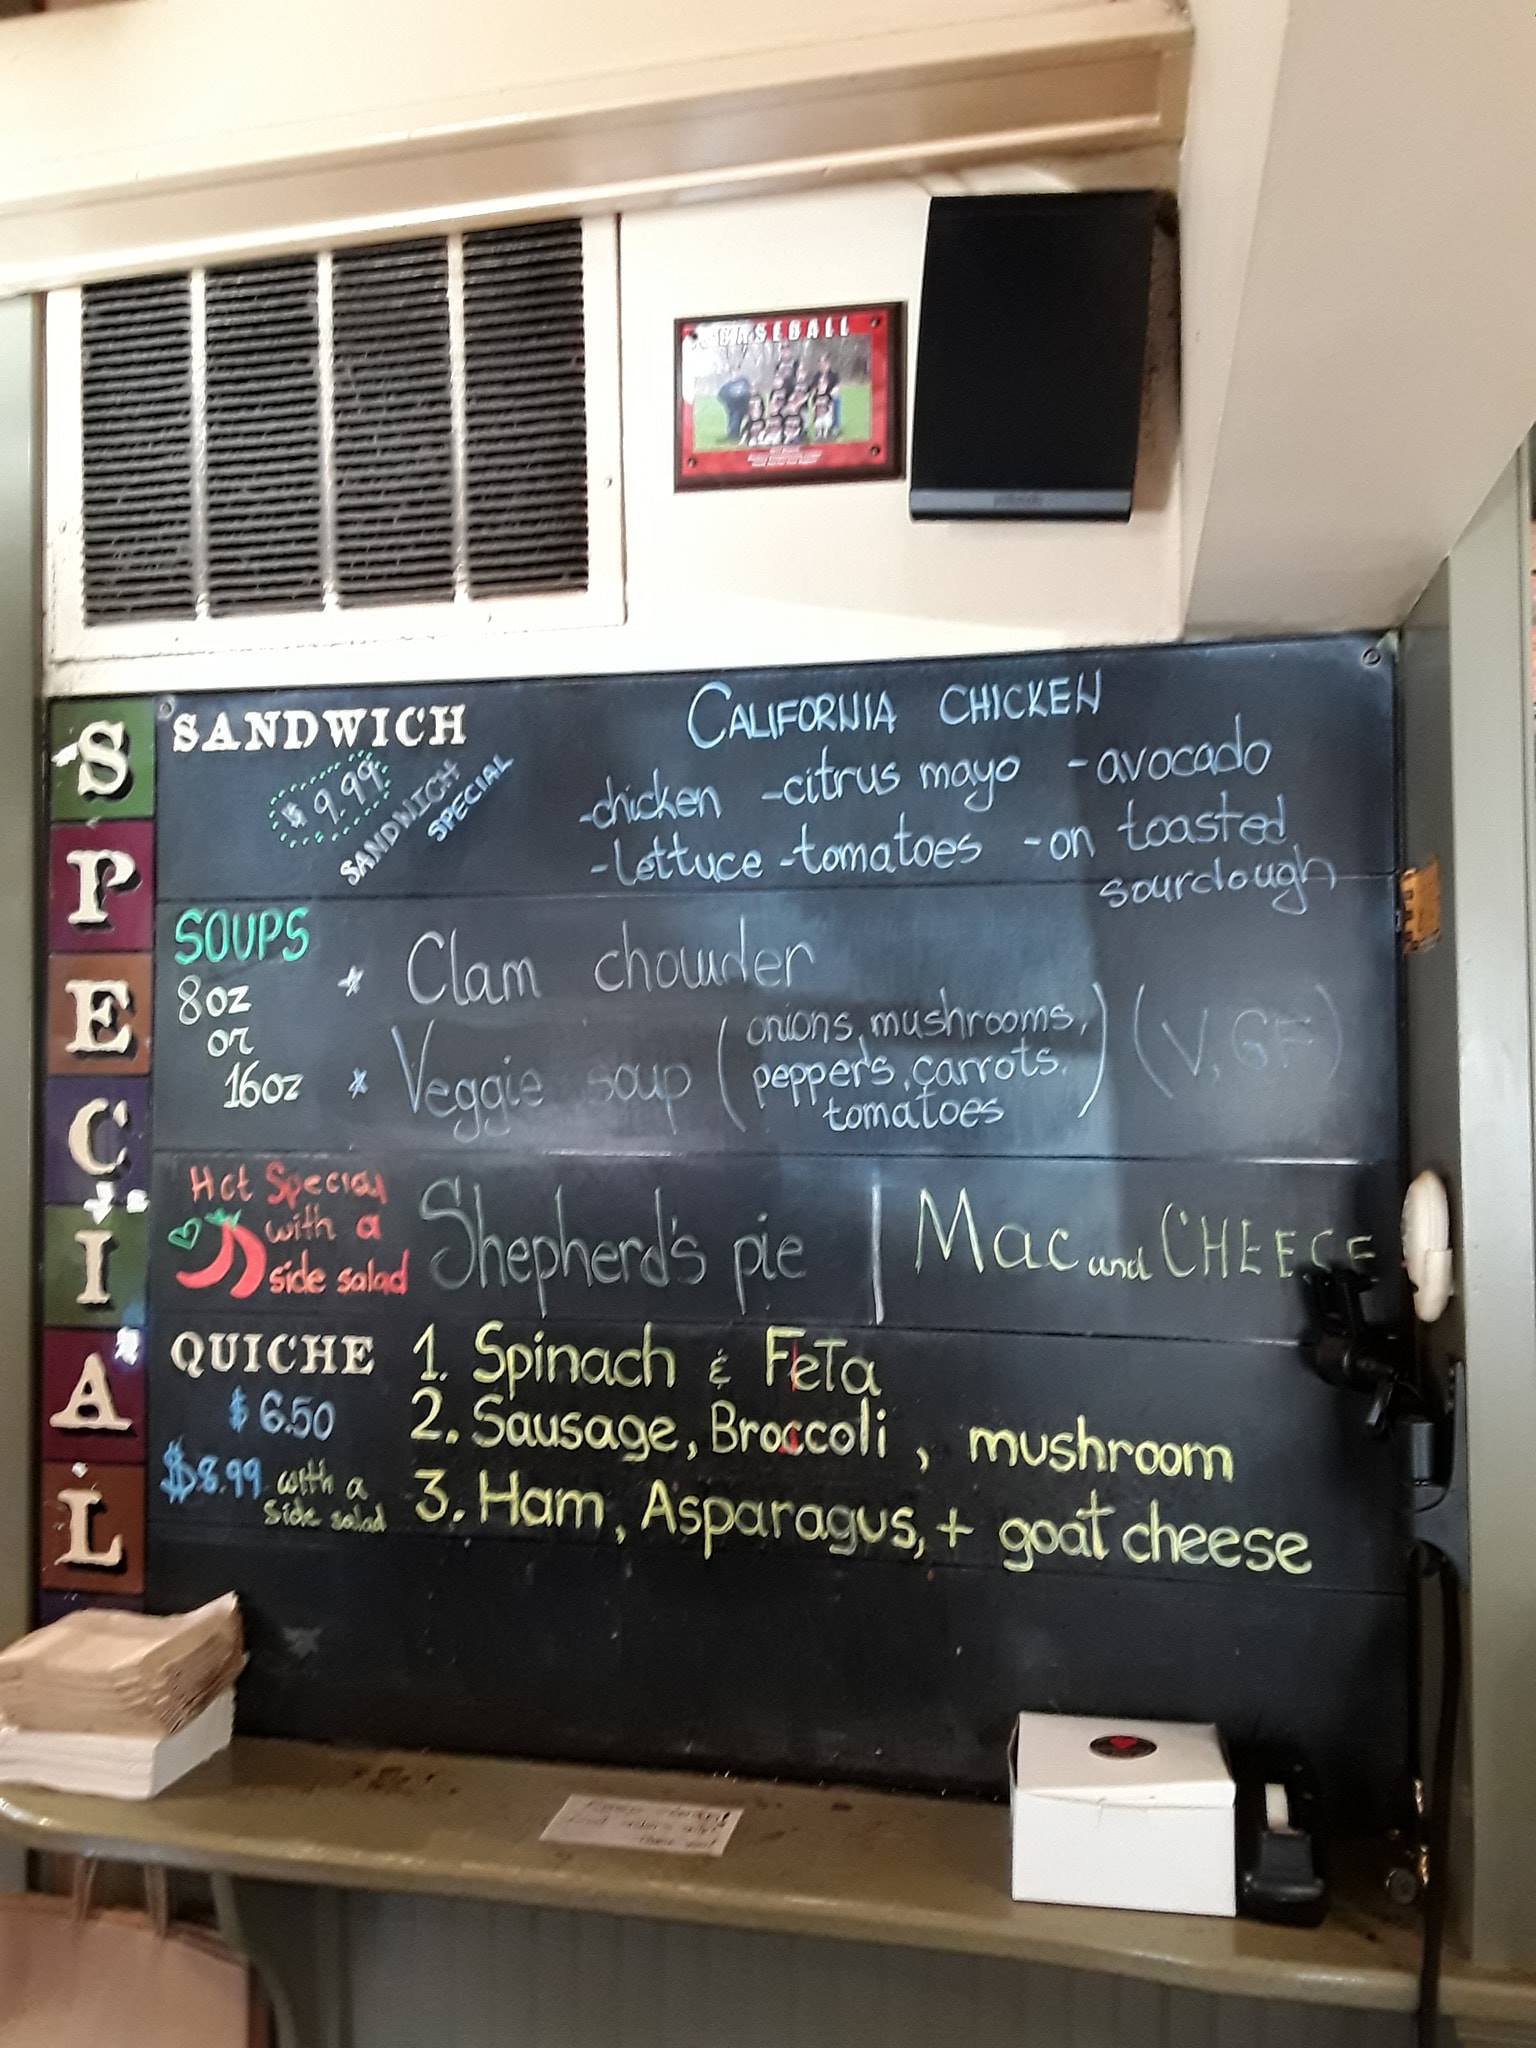 BASEBALL
SPECIAL
SANDWICH
$ 9.99
SANDWICH
SPECIAL
CALIFORNIA CHICKEN
-chicken -citrus mayo -avocado
-lettuce -tomatoes -on toasted
sourdough
SOUPS
8oz
or
16oz
* Clam chowder
* Veggie soup (onions, mushrooms,
peppers, carrots,
tomatoes) (V, GF)
Hot Special
with a
side salad
Shepherd's pie | Mac and CHEESE
QUICHE
$ 6.50
$8.99 with a
side salad
1. Spinach & FeTa
2. Sausage, Broccoli, mushroom
3. Ham, Asparagus, + goat cheese